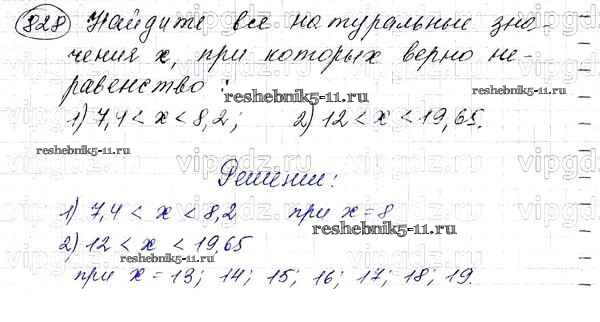 828 Найдите все натуральные зна-
чения x, при которых верно не-
равенство :
reshebnik5-11.ru
1) 7,4 < x < 8,2; 2) 12 < x < 19,65.
reshebnik5-11.ru
vipgdz.ru
Решение:
1) 7,4 < x < 8,2 при x = 8
reshebnik5-11.ru
2) 12 < x < 19,65
reshebnik5-11.ru
при x = 13; 14; 15; 16; 17; 18; 19.